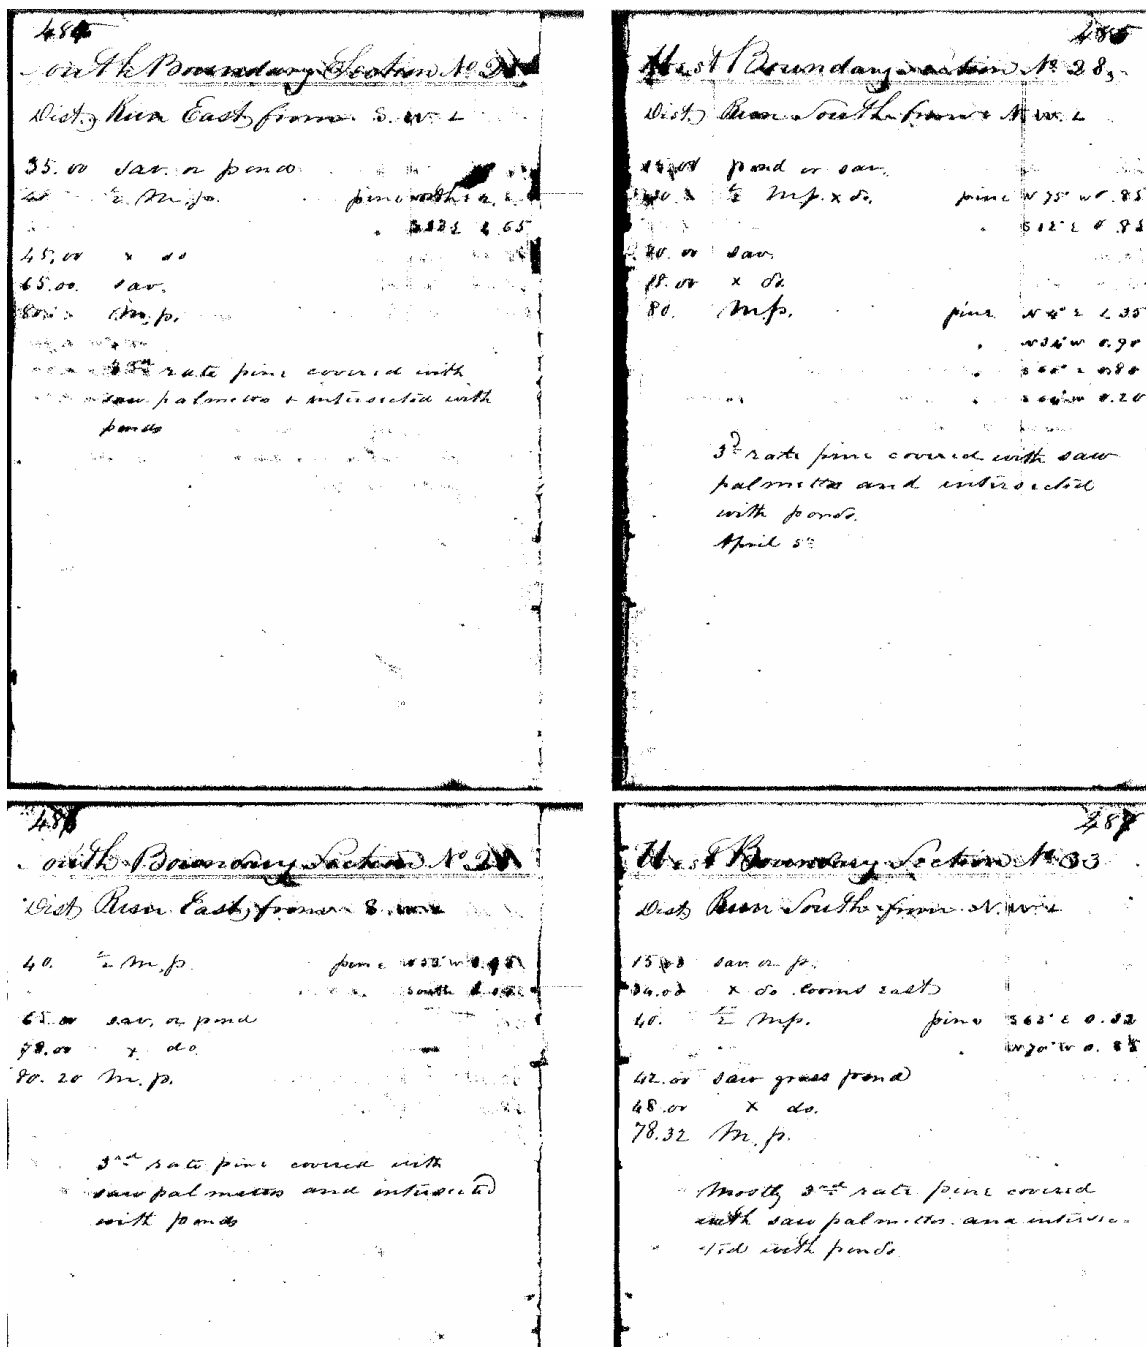 484
outh Boundary Section No 2
Dist. Run East from S. W. L
35.00 sav. or pond
40 ½ M. p. pine
65
45.00 x do
65.00 sav.
80 M. p.
3rd rate pine covered with
saw palmetto & intersected with
ponds
485
West Boundary Section No 28,
Dist. Run South from N. W. L
pond or sav.
½ M.p. x do. pine N 75 W 0.85
S 12 E 0.82
sav.
x do.
80. M.p. pine N 4 E 1.35
N 34 W 0.90
S 60 E 0.80
S 60 W 0.20
3d rate pine covered with saw
palmettos and intersected
with ponds.
April 5th
486
outh Boundary Section No 2
Dist Run East, from S.
40. ½ M. p. pine
south
65.00 sav. or pond
78.00 x do.
80.20 M. p.
3rd rate pine covered with
saw palmettos and intersected
with ponds
487
West Boundary Section No 33
Dist Run South from N. W. L
sav. or p.
34.00 x do. looms east
40. ½ M.p. pine S 65 E 0.32
N 70 W 0.85
42.00 saw grass pond
48.00 x do.
78.32 M. p.
Mostly 3rd rate pine covered
with saw palmettos and intersec-
-ted with ponds